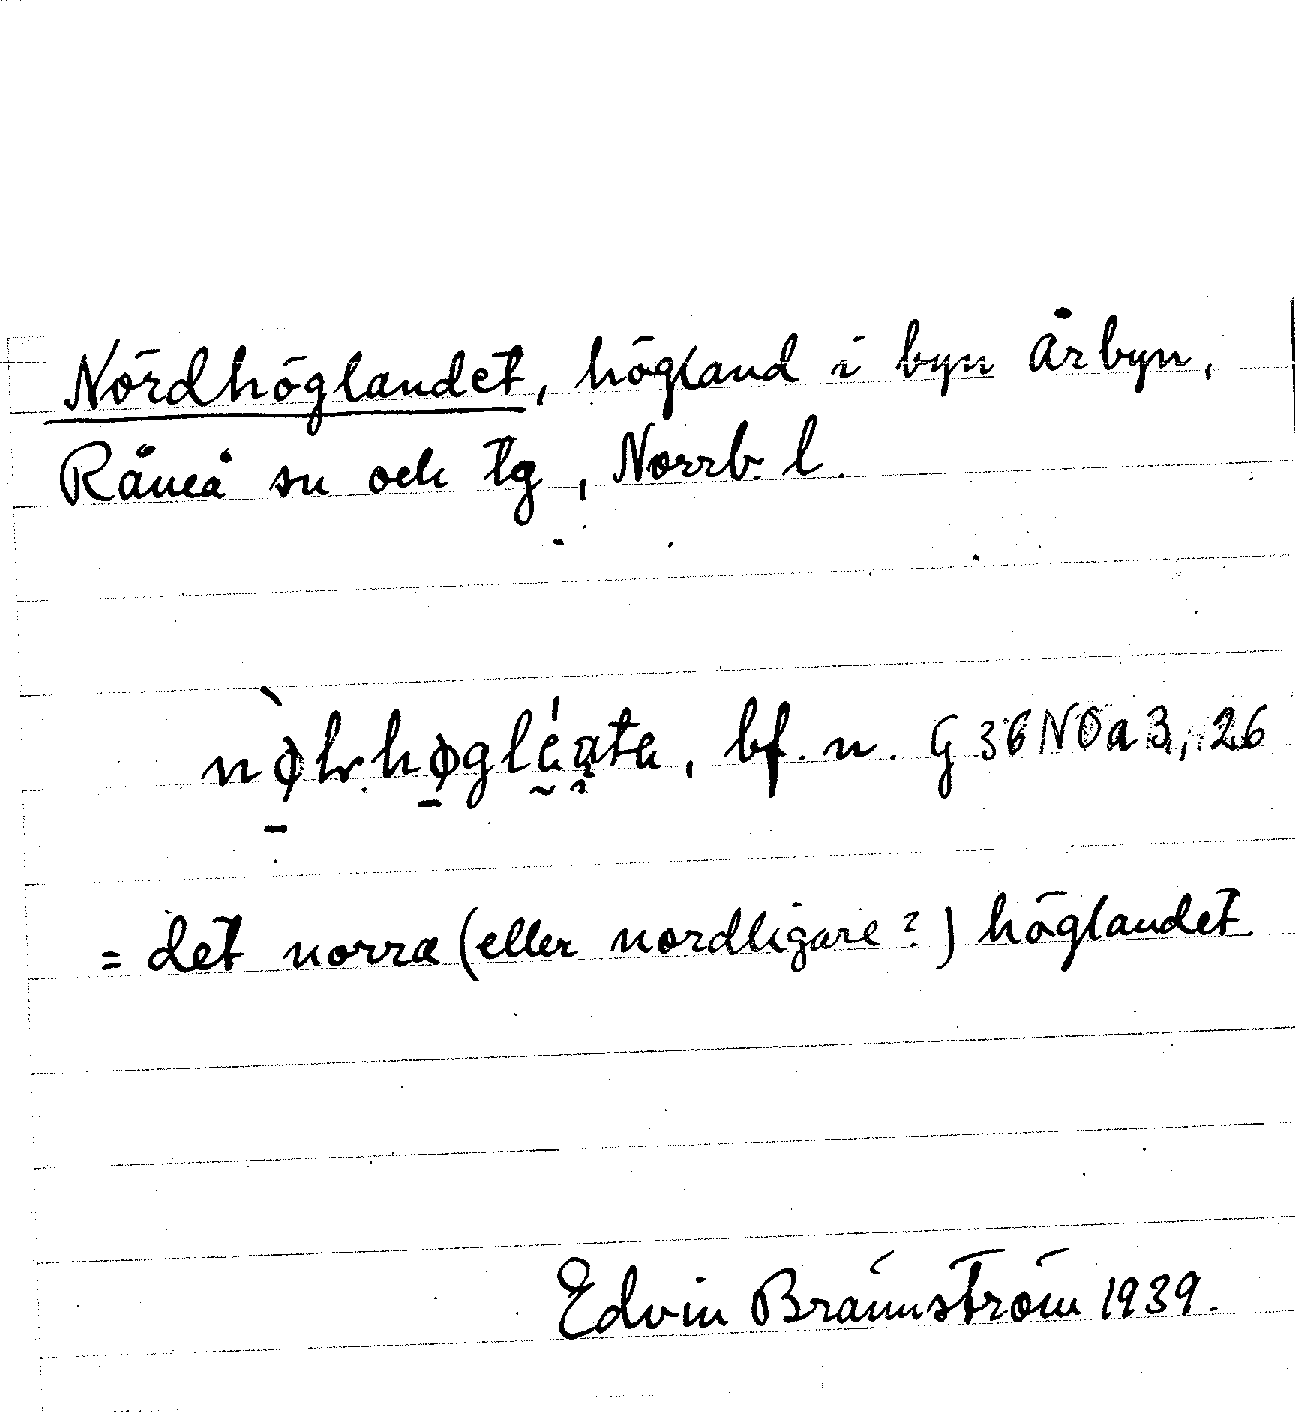 Nördhöglandet, högland i byn Årbyn,
Råneå sn och tg, Norrb. l.
bf. n. G 36 NOa3, 26
= det norra (eller nordligare?) höglandet
Edvin Brännström 1939.